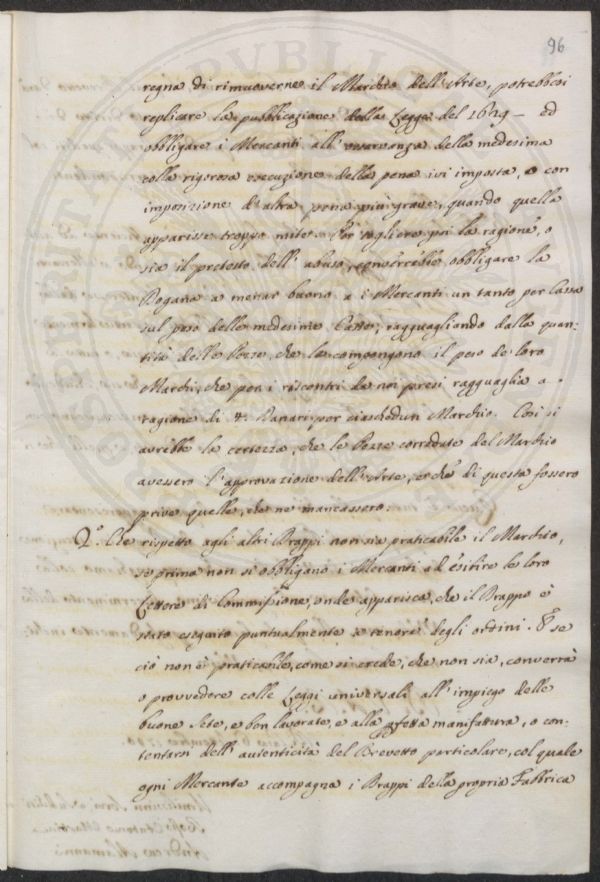 96
regna di rimuoverne il Marchio dell'Arte, potrebbesi
replicare la pubblicazione della Legge del 16 — ed
obbligare i Mercanti all'osservanza della medesima
colla rigorosa esecuzione della pena ivi imposta, o con
imposizione d'altra pena più grave, quando quella
apparisse troppo mite. Per togliere poi la ragione, o
sia il pretesto dell'abuso, converrebbe obbligare la
Dogana a menar buono a i Mercanti un tanto per Cassa
sul peso delle medesime Casse, ragguagliando dalla quan:
tità delle Pezze, che le compongono il peso de loro
Marchi, che per i riscontri da noi presi ragguaglia a
ragione di 4. Danari per ciaschedun Marchio. Così si
avrebbe la certezza, che le Pezze corredate del Marchio
avessero l'approvazione dell'Arte, e che di questa fossero
prive quelle, che ne mancassero.
2.° Che rispetto agli altri Drappi non sia praticabile il Marchio,
se prima non si obbligano i Mercanti ad esibire le loro
Lettere di Commissione, onde apparisca, che il Drappo è
stato eseguito puntualmente a tenore degli ordini. E se
ciò non è praticabile, come si crede, che non sia, converrà
o provvedere colle Leggi universali all'impiego delle
buone Sete, e ben lavorate, e alla pfetta manifattura, o con:
tentarsi dell'autenticità del Brevetto particolare, col quale
ogni Mercante accompagna i Drappi della propria Fabbrica